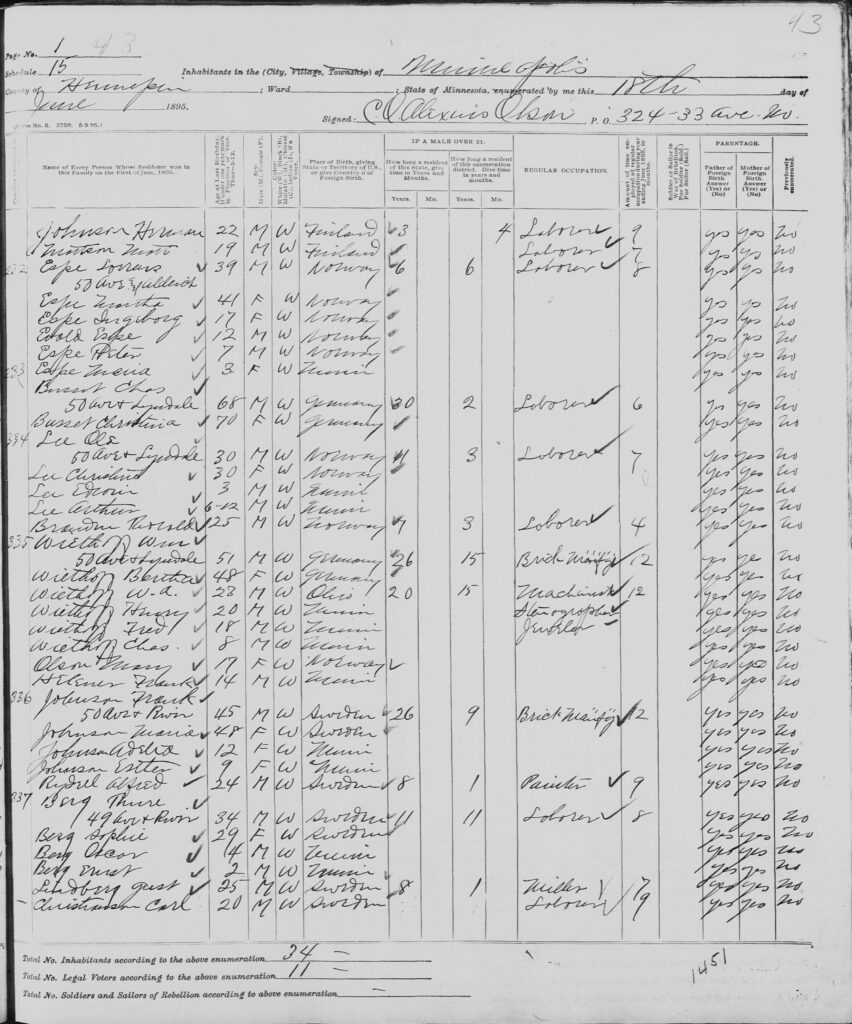 43
Page No. 1 43
Schedule 15 Inhabitants in the (City, Village, Township) of Minneapolis
County of Hennepin ; Ward ; State of Minnesota, enumerated by me this 18th day of
June 1895. Signed: C O Alexius Olson P. O. 324-33 Ave. No.
(Form No. 5. 3750, 5-9-95.)
IF A MALE OVER 21. PARENTAGE.
Name of Every Person Whose Residence was in this Family on the First of June, 1895.
Place of Birth, giving State or Territory of U.S. or give Country if of Foreign Birth.
How long a resident of this State, give time in Years and Months.
How long a resident of this enumeration district. Give time in years and months.
REGULAR OCCUPATION.
Soldier or Sailor in War of Rebellion.
Father of Foreign Birth. Answer (Yes) or (No)
Mother of Foreign Birth. Answer (Yes) or (No)
Previously enumerated.
Years. Mo. Years. Mo.
Johnson Herman 22 M W Finland 3 4 Laborer 9 yes yes no
Mattson Matt 19 M W Finland Laborer 7 yes yes no
332 Espe 39 M W Norway 6 6 Laborer 8 yes yes no
50 Ave & Aldrich
Espe Martha 41 F W Norway yes yes no
Espe Ingeborg 17 F W Norway yes yes no
Espe 12 M W Norway yes yes no
Espe Peter 7 M W Norway yes yes no
Espe Maria 3 F W Minn yes yes no
333 Busset Chas
50 Ave & Lyndale 68 M W Germany 30 2 Laborer 6 yes yes no
Busset Christina 70 F W Germany yes yes no
334 Lee Ole
50 Ave & Lyndale 30 M W Norway 3 Laborer 7 yes yes no
Lee Christine 30 F W Norway yes yes no
Lee Edwin 3 M W Minn yes yes no
Lee Arthur 6-12 M W Minn yes yes no
25 M W Norway 7 3 Laborer 4 yes yes no
335 Wiethoff Wm
50 Ave & Lyndale 51 M W Germany 26 15 Brick 12 yes yes no
Wiethoff Bertha 48 F W Germany yes yes no
Wiethoff W. A. 23 M W Ohio 20 15 Machinist 12 yes yes no
Wiethoff Henry 20 M W Minn Stenographer yes yes no
Wiethoff Fred 18 M W Minn Jeweler yes yes no
Wiethoff Chas. 8 M W Minn yes yes no
Olson Mary 17 F W Norway yes yes no
Frank 14 M W Minn yes yes no
336 Johnson Frank
50 Ave & River 45 M W Sweden 26 9 Brick 12 yes yes no
Johnson Maria 48 F W Sweden yes yes no
Johnson Adelia 12 F W Minn yes yes no
Johnson Esther 9 F W Minn yes yes no
Alfred 24 M W Sweden 8 1 Painter 9 yes yes no
337 Berg Thure
49 Ave & River 34 M W Sweden 11 11 Laborer 8 yes yes no
Berg Sophie 29 F W Sweden yes yes no
Berg Oscar 4 M W Minn yes yes no
Berg Ernst 2 M W Minn yes yes no
Lindberg Gust 25 M W Sweden 8 1 Miller 7 yes yes no
Christianson Carl 20 M W Sweden Laborer 9 yes yes no
Total No. Inhabitants according to the above enumeration 34 —
Total No. Legal Voters according to the above enumeration 11 —
Total No. Soldiers and Sailors of Rebellion according to above enumeration —
1451